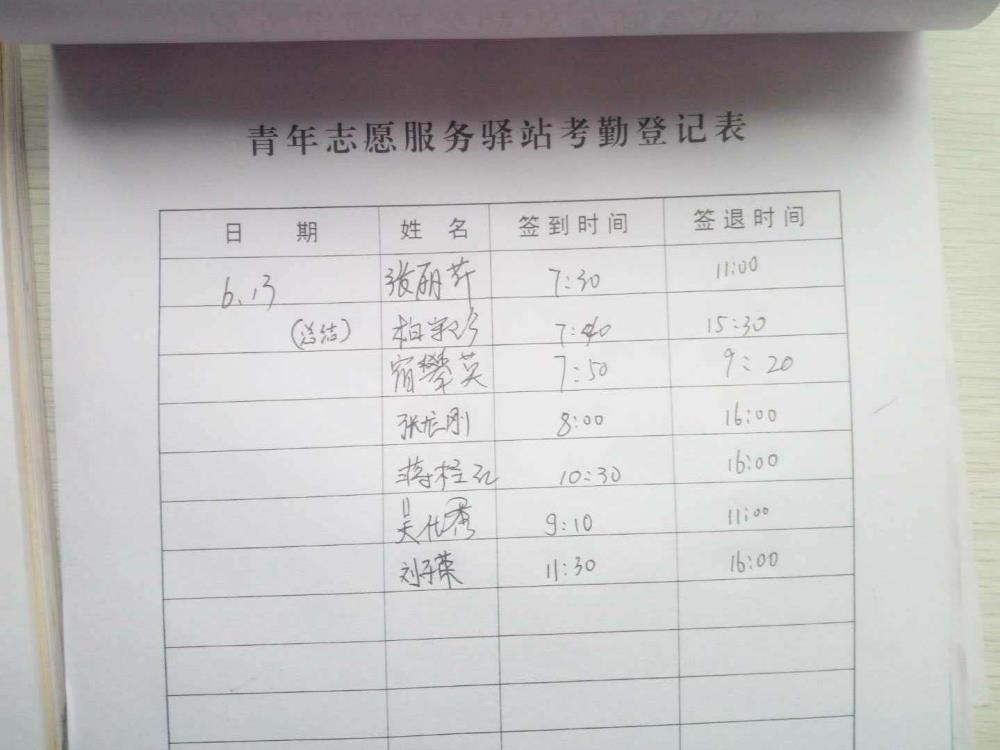 青年志愿服务驿站考勤登记表
日 期 姓 名 签到时间 签退时间
6.13 张丽芹 7:30 11:00
(总结) 柏 7:40 15:30
宿攀英 7:50 9:20
张宏刚 8:00 16:00
蒋 10:30 16:00
吴代秀 9:10 11:00
刘子荣 11:30 16:00